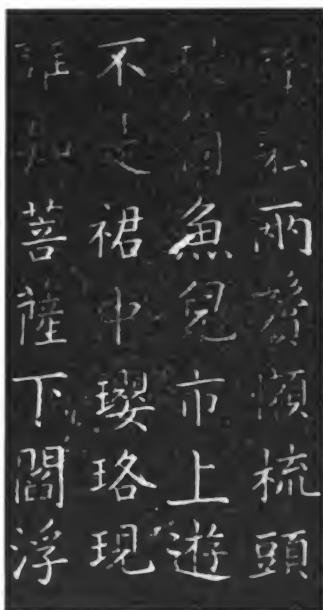 兩鬢懶梳頭
魚兒市上遊
不是裙中瓔珞現
誰知菩薩下閻浮